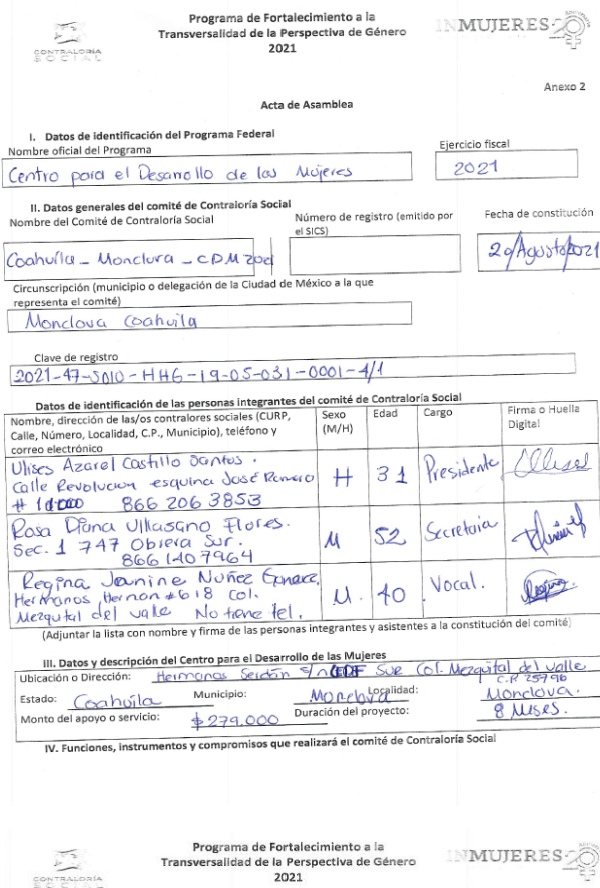 Programa de Fortalecimiento a la
Transversalidad de la Perspectiva de Género
2021
CONTRALORÍA
SOCIAL
INMUJERES
Anexo 2
Acta de Asamblea
I. Datos de identificación del Programa Federal
Nombre oficial del Programa
Ejercicio fiscal
Centro para el Desarrollo de las Mujeres
2021
II. Datos generales del comité de Contraloría Social
Nombre del Comité de Contraloría Social
Número de registro (emitido por
el SICS)
Fecha de constitución
Coahuila - Monclova - CDM
20/Agosto/2021
Circunscripción (municipio o delegación de la Ciudad de México a la que
representa el comité)
Monclova Coahuila
Clave de registro
2021-47-S010-HHG-19-05-031-0001-4/1
Datos de identificación de las personas integrantes del comité de Contraloría Social
Nombre, dirección de las/os contralores sociales (CURP,
Calle, Número, Localidad, C.P., Municipio), teléfono y
correo electrónico
Sexo
(M/H)
Edad
Cargo
Firma o Huella
Digital
Ulises Azarel Castillo Santos.
Calle Revolucion esquina José Romero
866 206 3853
H
31
Presidente
Rosa Diana Villasano Flores.
Sec. 1 747 Obrera Sur.
866 1407964
M
52
Secretaria
Regina Jeanine Nuñez
Hermanos #618 Col.
Mezquital del valle No tiene tel.
M.
40
Vocal.
(Adjuntar la lista con nombre y firma de las personas integrantes y asistentes a la constitución del comité)
III. Datos y descripción del Centro para el Desarrollo de las Mujeres
Ubicación o Dirección: Hermanos Serdán s/n Sur Col. Mezquital del valle
C.P. 25796
Estado: Coahuila Municipio: Monclova Localidad: Monclova.
Monto del apoyo o servicio: $279.000 Duración del proyecto: 8 Meses.
IV. Funciones, instrumentos y compromisos que realizará el comité de Contraloría Social
Programa de Fortalecimiento a la
Transversalidad de la Perspectiva de Género
2021
CONTRALORÍA
INMUJERES